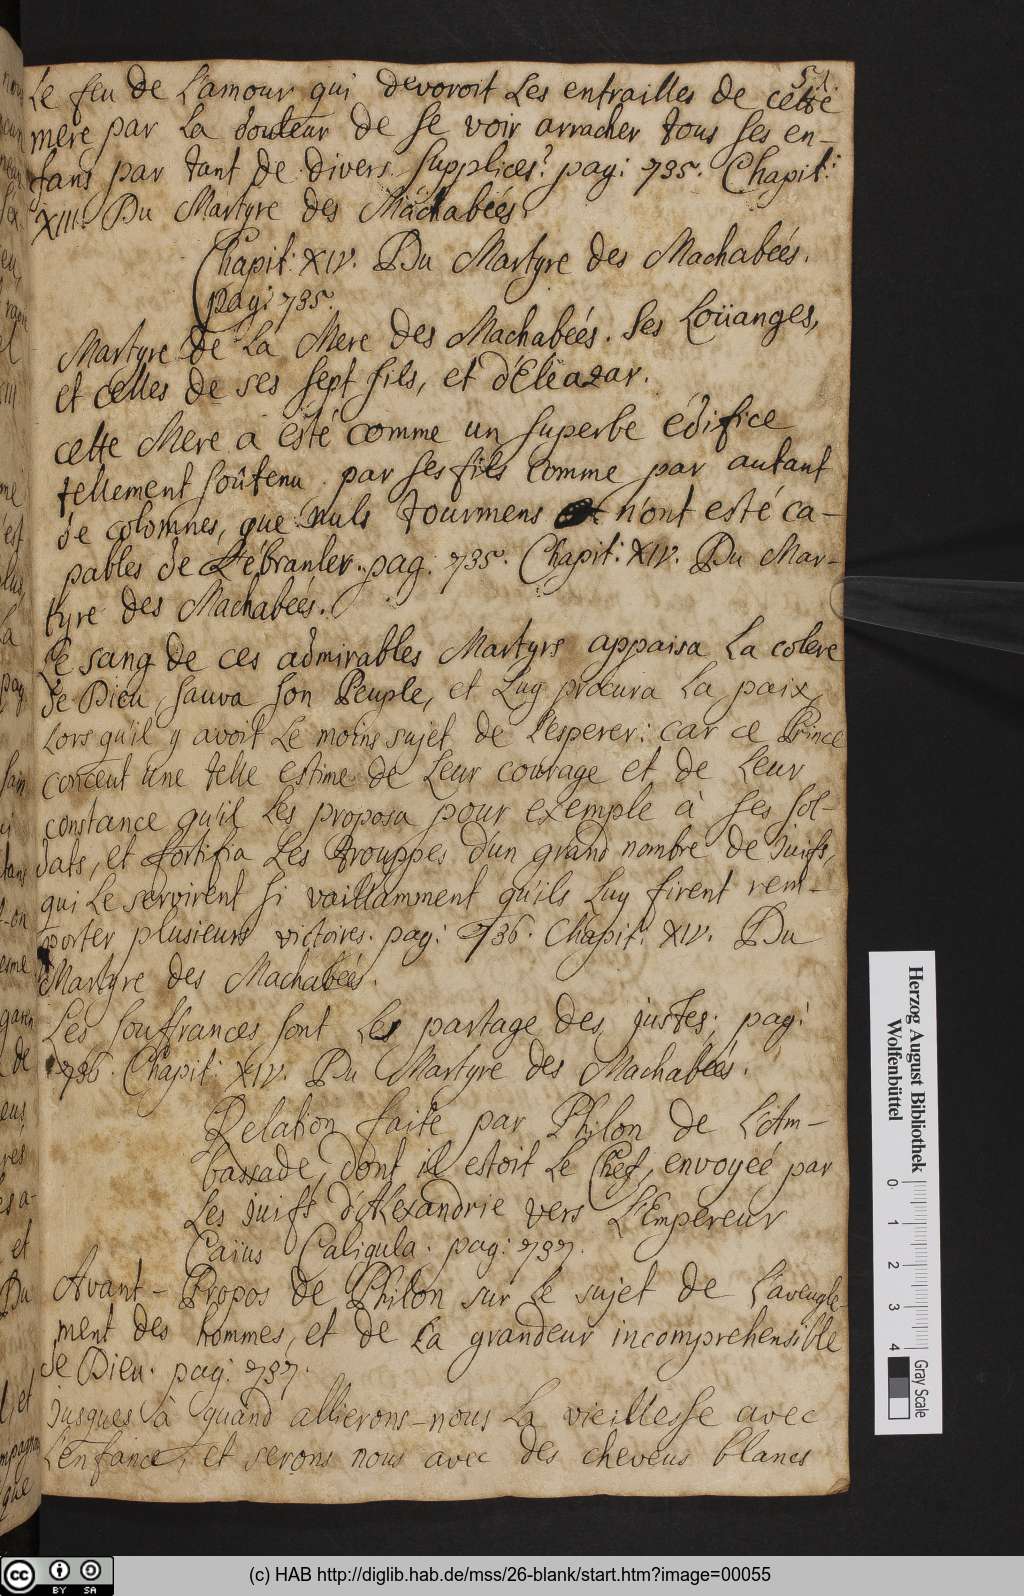 51.
Le feu de L'amour qui devoroit Les entrailles de cette
mere par La douleur de se voir arracher tous ses en-
fans par tant de divers supplices? pag: 735. Chapit:
XIII. Du Martyre des Machabeés.
Chapit: XIV. Du Martyre des Machabeés.
pag: 735.
Martyre de La Mere des Machabeés. Ses Loüanges,
et celles de ses sept fils, et d'Eleazar.
cette Mere a esté comme un superbe édifice
tellement soûtenu par ses fils comme par autant
de colomnes, que nuls tourmens n'ont esté ca-
pables de L'ébranler. pag: 735. Chapit: XIV. Du Mar-
tyre des Machabeés.
Le sang de ces admirables Martyrs appaisa La colere
de Dieu, sauva son Peuple, et Luy procura La paix
Lors qu'il y avoit Le moins sujet de L'esperer: car ce Prince
conceut une telle estime de Leur courage et de Leur
constance qu'il Les proposa pour exemple à ses sol-
dats, et fortifia Les trouppes d'un grand nombre de Juifs,
qui Le servirent si vaillamment qu'ils Luy firent rem-
porter plusieurs victoires. pag: 736. Chapit: XIV. Du
Martyre des Machabeés.
Les souffrances sont Les partage des justes; pag:
736. Chapit: XIV. Du Martyre des Machabeés.
Relation faite par Philon de L'Am-
bassade, dont il estoit Le Chef, envoyeé par
Les Juifs d'Alexandrie vers L'Empereur
Caïus Caligula. pag: 737.
Avant-Propos de Philon sur Le sujet de L'aveugle-
ment des hommes, et de La grandeur incomprehensible
de Dieu. pag: 737.
Jusques à quand allierons-nous La vieillesse avec
L'enfance, et serons nous avec des cheveus blancs
Herzog August Bibliothek
Wolfenbüttel
0 1 2 3 4
Gray Scale
cc BY SA
(c) HAB http://diglib.hab.de/mss/26-blank/start.htm?image=00055